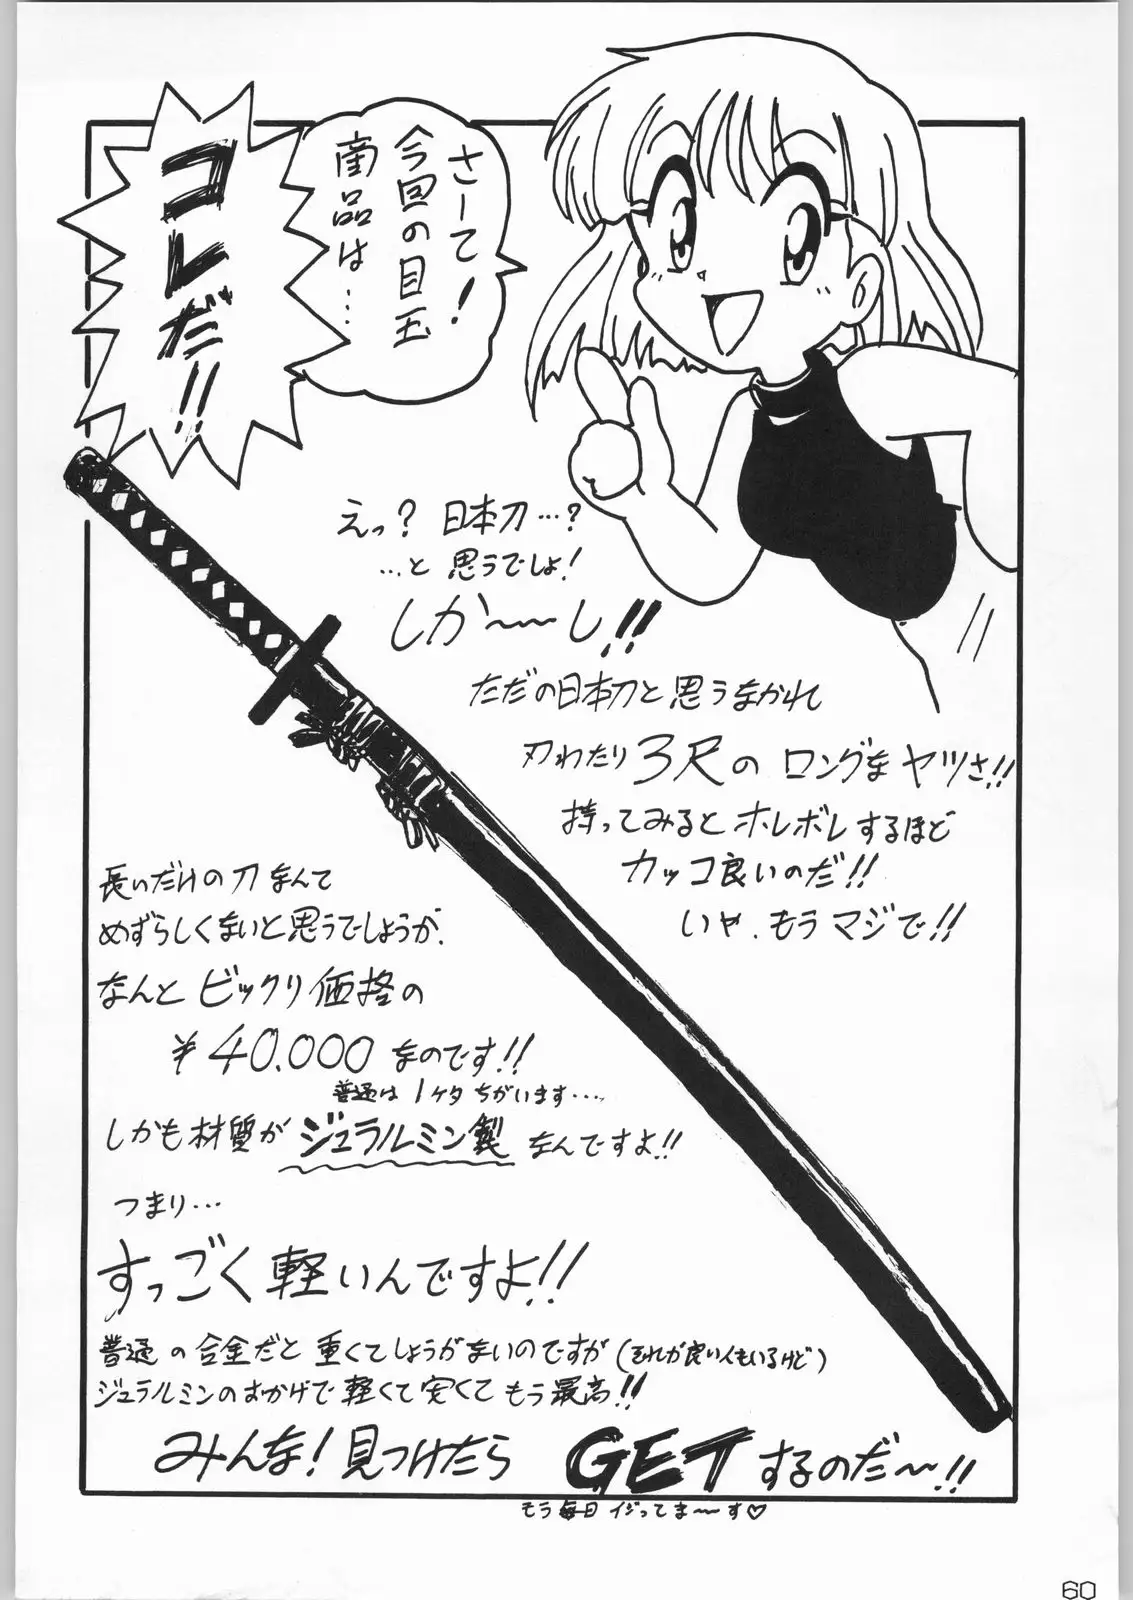 さーて!
今回の目玉
商品は…
コレだ!!
えっ? 日本刀…?
…と思うでしょ!
しか〜〜し!!
ただの日本刀と思うなかれ
刃わたり3尺のロングなヤツさ!!
持ってみるとホレボレするほど
カッコ良いのだ!!
いや、もうマジで!!
長いだけの刀なんて
めずらしくないと思うでしょうが、
なんとビックリ価格の
¥40.000なのです!!
普通は1ケタちがいます….
しかも材質がジュラルミン製なんですよ!!
つまり…
すっごく軽いんですよ!!
普通の合金だと重くてしょうがないのですが(それが良い人もいるけど)
ジュラルミンのおかげで軽くて安くてもう最高!!
みんな!見つけたらGETするのだ〜!!
もう毎日イジってま〜〜す♡
60